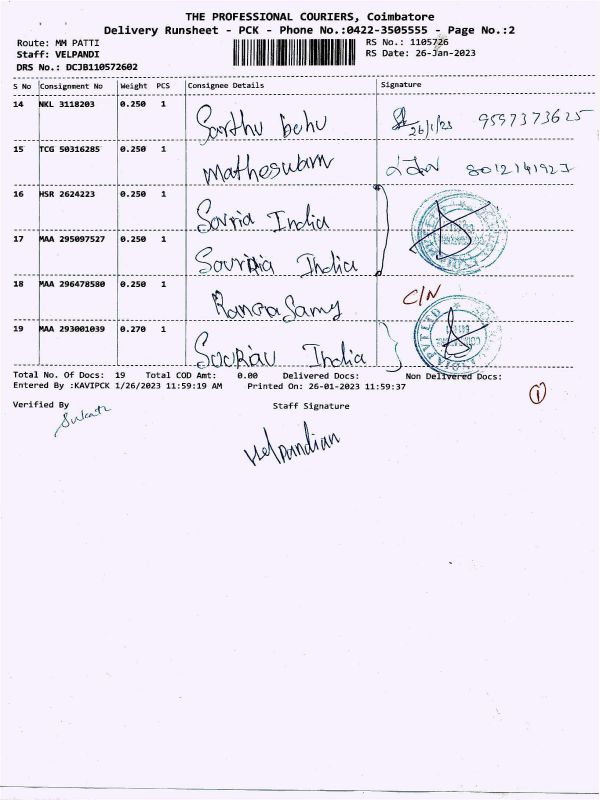 THE PROFESSIONAL COURIERS, Coimbatore
Delivery Runsheet - PCK - Phone No.:0422-3505555 - Page No.:2
Route: MM PATTI RS No.: 1105726
Staff: VELPANDI RS Date: 26-Jan-2023
DRS No.: DCJB110572602
S No Consignment No Weight PCS Consignee Details Signature
14 NKL 3118203 0.250 1 Sarthu behu 26/1/23 9597373625
15 TCG 50316285 0.250 1 Matheswarn 8012141927
16 HSR 2624223 0.250 1 Sovria India
17 MAA 295097527 0.250 1 India
18 MAA 296478580 0.250 1 RangaSamy C/N
19 MAA 293001039 0.270 1 Sooriau India
Total No. Of Docs: 19 Total COD Amt: 0.00 Delivered Docs: Non Delivered Docs:
Entered By :KAVIPCK 1/26/2023 11:59:19 AM Printed On: 26-01-2023 11:59:37
1
Verified By Staff Signature
velpandian